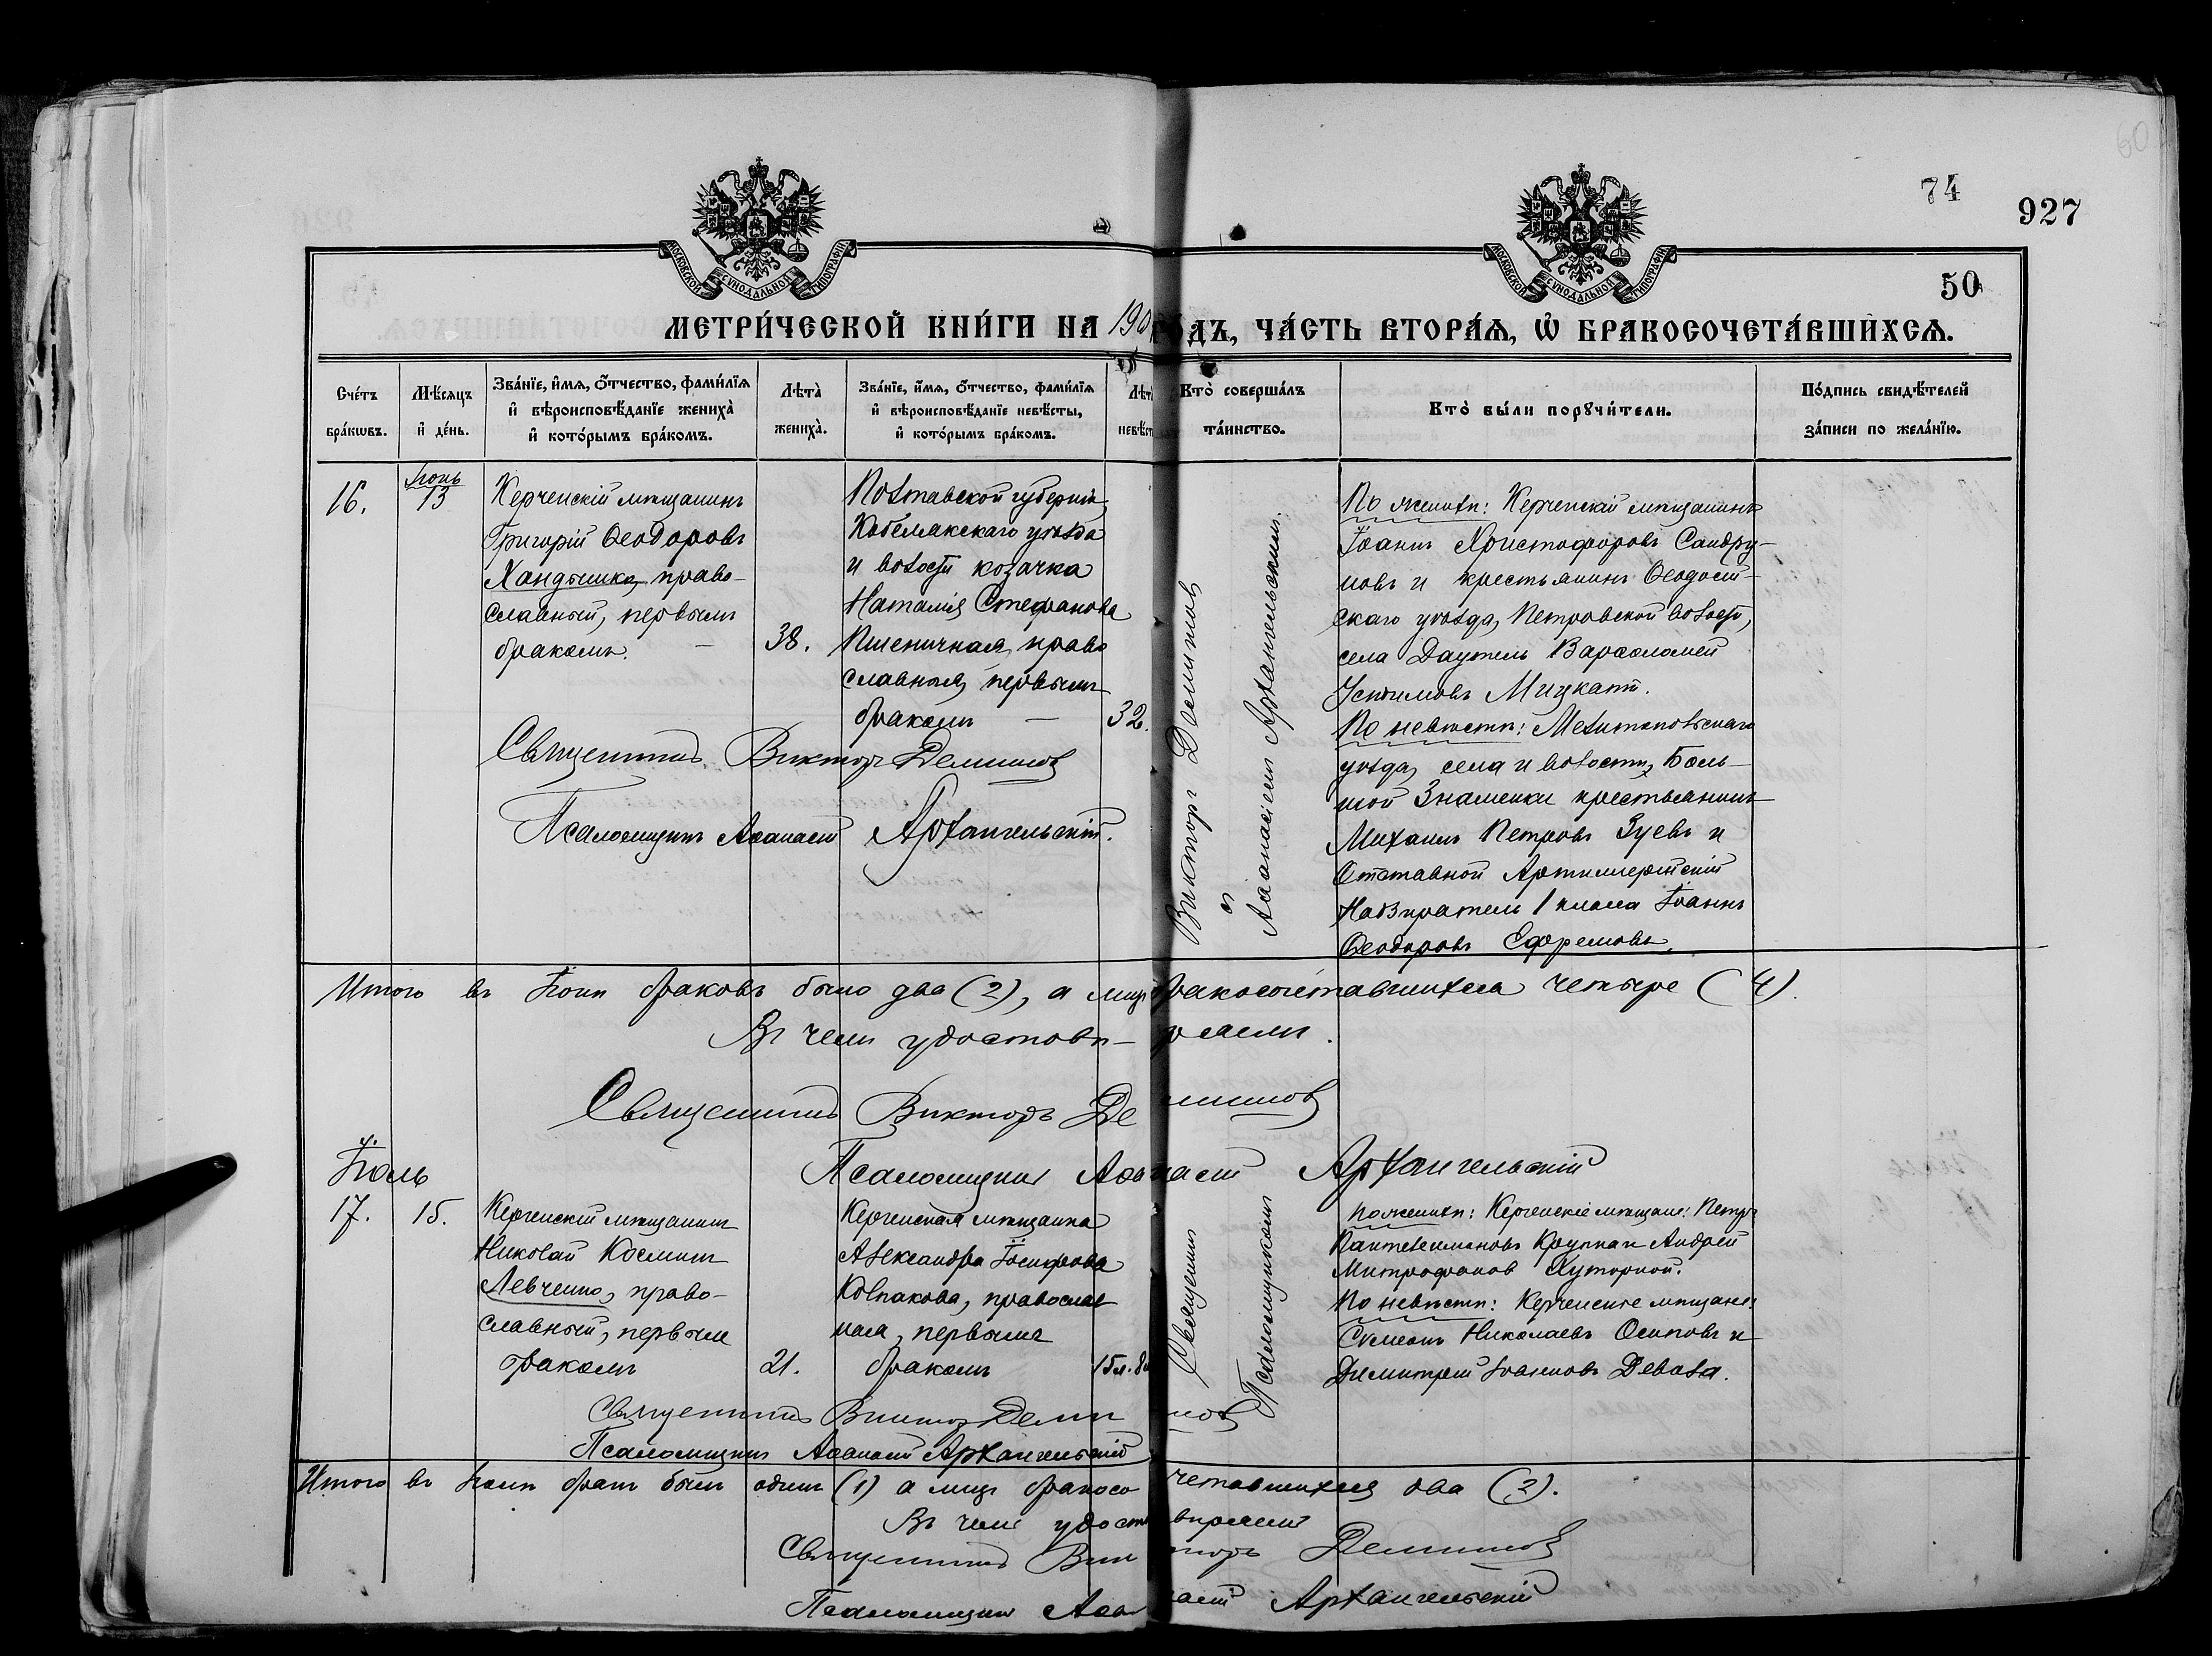 60
74
927
50
МОСКОВСКОЙ СУНОДАЛЬНОЙ ТИПОГРАФІИ
МОСКОВСКОЙ СУНОДАЛЬНОЙ ТИПОГРАФІИ
МЕТРИ́ЧЕСКОЙ КНИ́ГИ НА 190 ДЪ, ЧА́СТЬ ВТОРА́Ѧ, Ѡ БРАКОСОЧЕТА́ВШИХСѦ.
Сче́тъ
бра́кѡвъ.
Мѣ́сяцъ
и҆ де́нь.
Зва́нїе, и҆́мѧ, ѻ҆́тчество, фами́лїѧ
и҆ вѣроисповѣ́данїе жениха̀
и҆ кото́рымъ бра́комъ.
Лѣта̀
жениха̀.
Зва́нїе, и҆́мѧ, ѻ҆́тчество, фами́лїѧ
и҆ вѣроисповѣ́данїе невѣ́сты,
и҆ кото́рымъ бра́комъ.
Лѣта̀
невѣст
Кто̀ соверша́лъ
та́инство.
Кто̀ бы́ли порꙋчи́тели.
По́дпись свидѣ́телей
за́писи по жела́нїю.
16.
Іюнь
13
Керченскій мѣщанинъ
Григорій Ѳеодоровъ
Хандышка, право-
славный, первымъ
бракомъ. —
38.
Полтавской губерніи,
Кобелякскаго уѣзда
и волости козачка
Наталія Стефанова
Пшеничная, право
славная, первымъ
бракомъ —
32.
Викторъ Деминовъ
съ
Аѳанасіемъ Архангельскимъ.
По женихѣ: Керченскій мѣщанинъ
Іоаннъ Христофоровъ Сандру-
новъ и крестьянинъ Ѳеодосій-
скаго уѣзда, Петровской волости,
села Даутель Варѳоломей
Устимовъ Мицкатъ.
По невѣстѣ: Мелитопольскаго
уѣзда, села и волости, Боль-
шой Знаменки крестьянинъ
Михаилъ Петровъ Зуевъ и
Отставной Артиллерійскій
Надзиратель 1 класса Іоаннъ
Ѳеодоровъ Ефремовъ.
Священникъ Викторъ Деминовъ
Псаломщикъ Аѳанасій Архангельскій.
Итого въ Іюнѣ браковъ было два (2), а лицъ бракосочетавшихся четыре (4).
Въ чемъ удостовѣ-ряемъ.
Священникъ Викторъ Деминовъ
Псаломщикъ Аѳанасій Архангельскій
Іюль
17.
15.
Керченскій мѣщанинъ
Николай Косминъ
Левченко, право-
славный, первымъ
бракомъ
21.
Керченская мѣщанка
Александра Іосифова
Колпакова, православ
ная, первымъ
бракомъ
15 л. 8
Священникъ
Псаломщикомъ
По женихѣ: Керченскіе мѣщане: Петръ
Пантелеимоновъ Крупка и Андрей
Митрофановъ Хуторной.
По невѣстѣ: Керченскіе мѣщане:
Сѵмеонъ Николаевъ Осиповъ и
Димитрій Іоанновъ Девола.
Священникъ Викторъ Деминовъ
Псаломщикъ Аѳанасій Архангельскій
Итого въ Іюлѣ бракъ былъ одинъ (1) а лицъ бракосочетавшихся два (2).
Въ чемъ удостовѣряемъ
Священникъ Викторъ Деминовъ
Псаломщикъ Аѳанасій Архангельскій